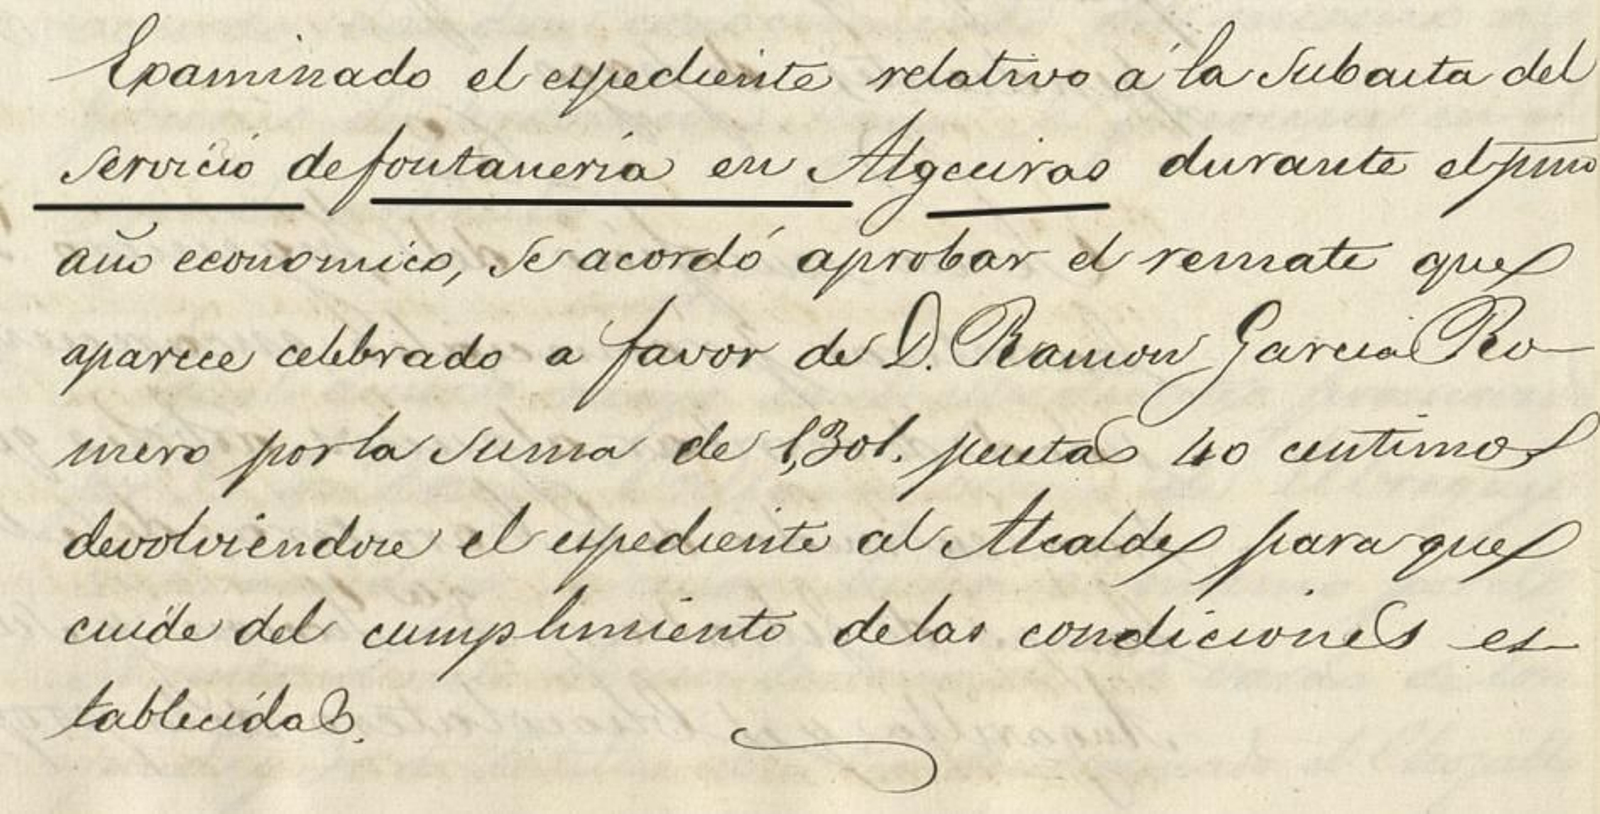 Examinado el espediente relativo á la subasta del
servicio de fontaneria en Algeciras durante el pmo
año economico, se acordó aprobar el remate que
aparece celebrado a favor de D. Ramon Garcia Ro-
mero por la suma de 1,301. pesetas 40 centimos
devolviendose el espediente al Alcalde para que
cuide del cumplimiento de las condiciones es-
tablecidas.